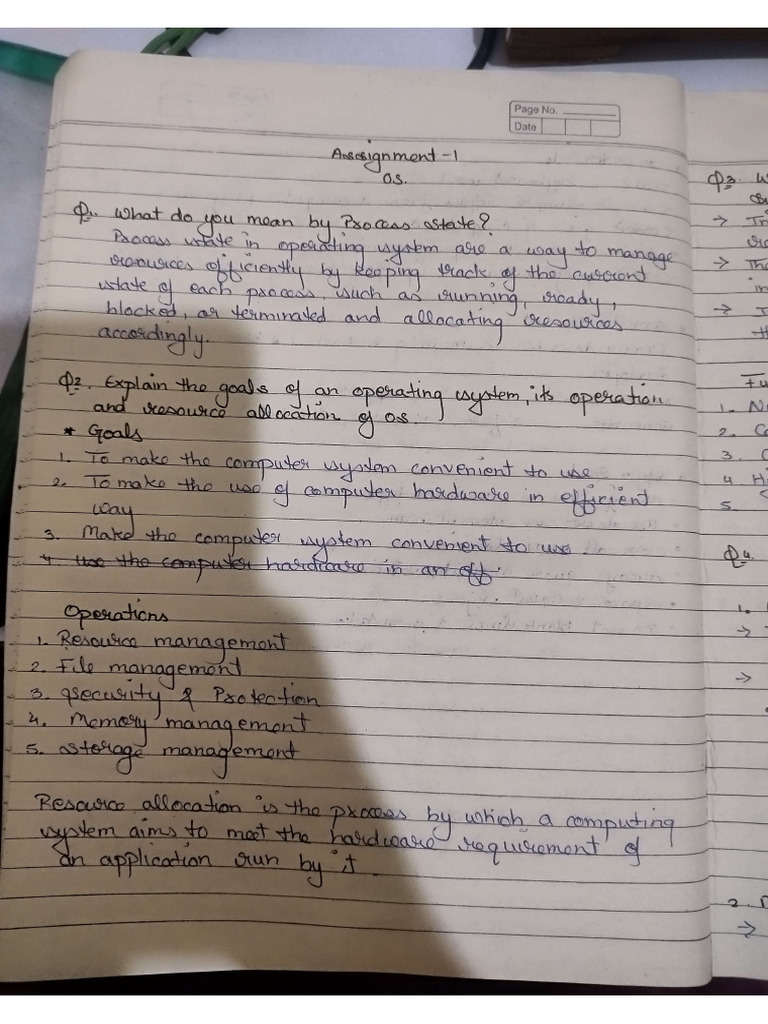 Page No.
Date
Assignment-1
OS.
Q1. What do you mean by Process state?
Process state in operating system are a way to manage
resources efficiently by keeping track of the current
state of each process, such as running, ready,
blocked, or terminated and allocating resources
accordingly.
Q2. Explain the goals of an operating system, its operation
and resource allocation of OS.
* Goals
1. To make the computer system convenient to use
2. To make the use of computer hardware in efficient
way
3. Make the computer system convenient to use.
4. Use the computer hardware in an eff.
Operations
1. Resource management
2. File management
3. Security & Protection
4. Memory management
5. Storage management
Resource allocation is the process by which a computing
system aims to meet the hardware requirement of
an application run by it.
Q3
→
→
→
1.
2.
3.
4.
5.
Q4.
1.
→
→
2.
→